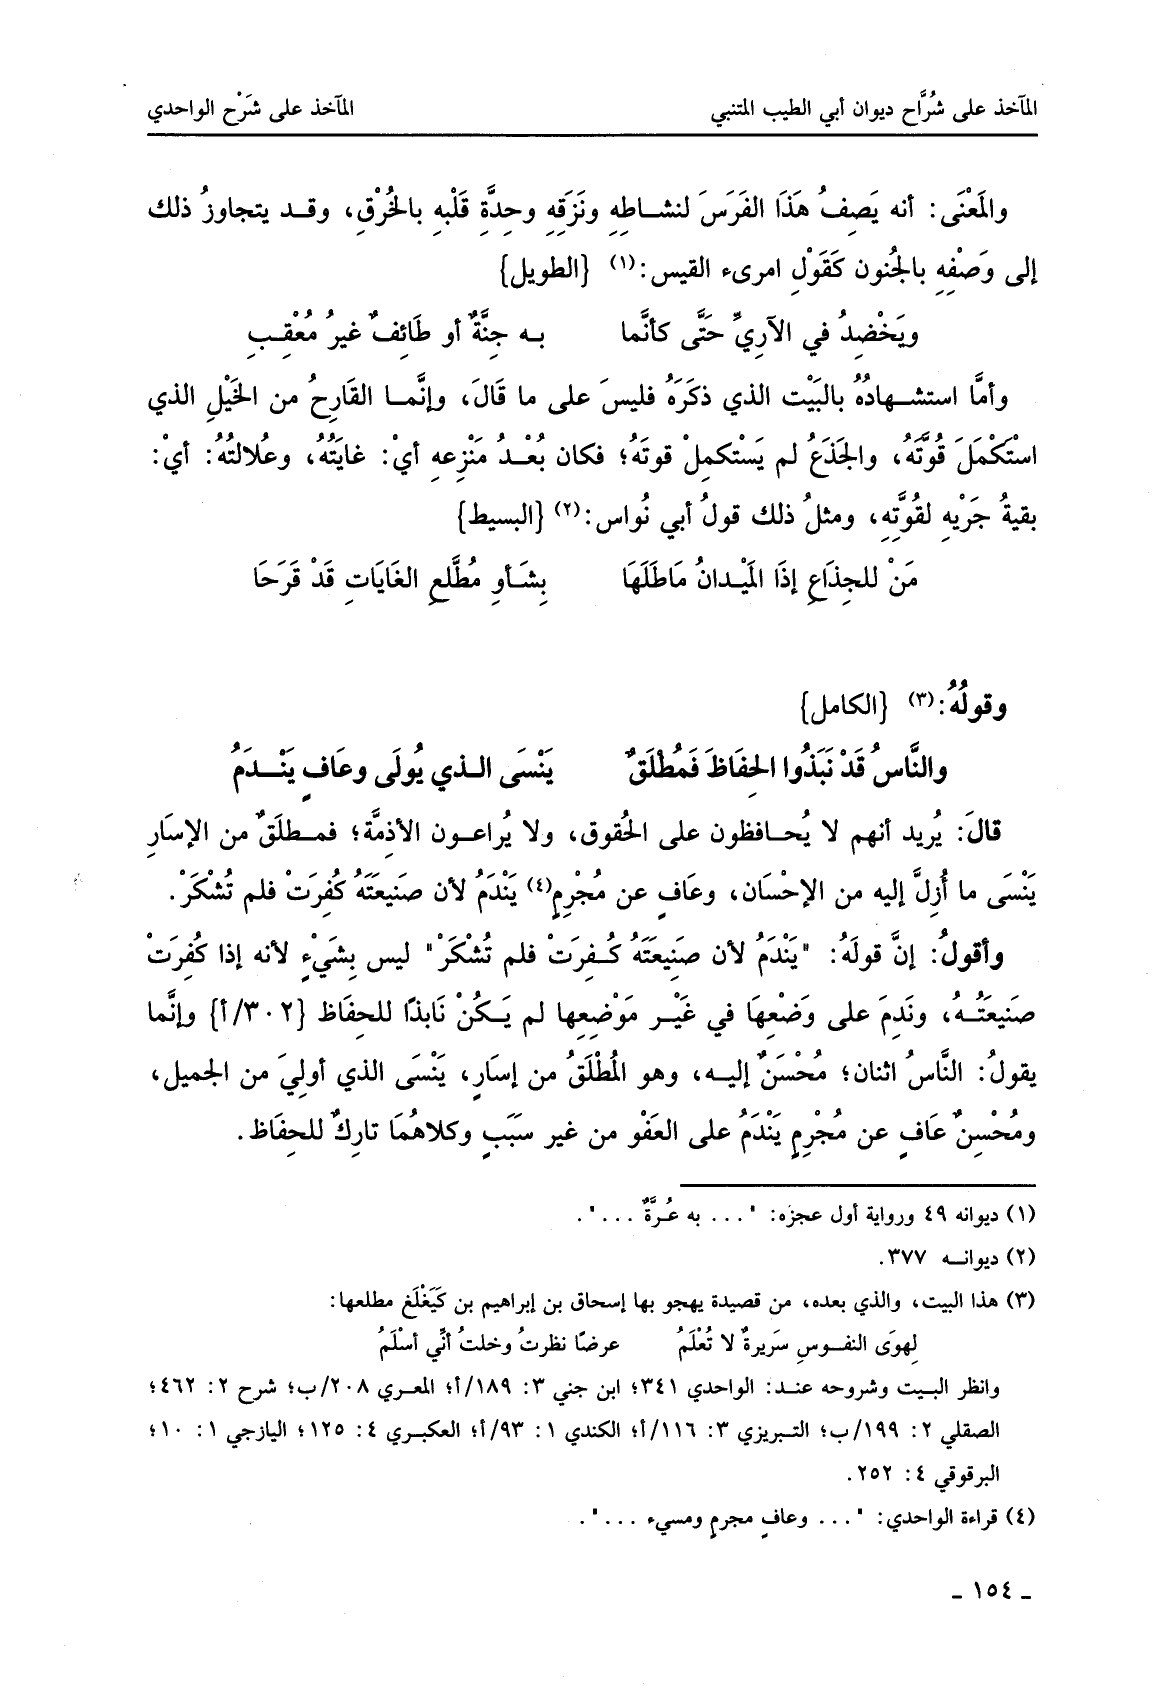 المآخذ على شُرَّاح ديوان أبي الطيب المتنبي المآخذ على شَرْح الواحدي
والمَعْنَى: أنه يَصِفُ هَذَا الفَرَسَ لنشاطِهِ ونَزَقِهِ وحِدَّةِ قَلْبِهِ بالخُرْقِ، وقد يتجاوزُ ذلك
إلى وَصْفِهِ بالجُنون كَقَوْلِ امرىء القيس:(١) {الطويل}
ويَخْضِدُ في الآرِيِّ حَتَّى كأنَّما به جِنَّةٌ أو طَائِفٌ غيرُ مُعْقِبِ
وأمَّا استشهادُهُ بالبَيْت الذي ذكَرَهُ فليسَ على ما قَالَ، وإنَّما القَارِحُ من الخَيْلِ الذي
اسْتَكْمَلَ قُوَّتَهُ، والجَذَعُ لم يَسْتكمِلْ قوتَهُ؛ فكان بُعْدُ مَنْزعِهِ أيْ: غايَتُهُ، وعُلالتُهُ: أيْ:
بقيةُ جَرْيِهِ لقُوَّتِهِ، ومثلُ ذلك قولُ أبي نُواس:(٢) {البسيط}
مَنْ للجِذَاعِ إذَا المَيْدانُ مَاطَلَهَا بِشَأوِ مُطَّلِعِ الغَايَاتِ قَدْ قَرَحَا
وقولُهُ:(٣) {الكامل}
والنَّاسُ قَدْ نَبَذُوا الحِفَاظَ فَمُطْلَقٌ يَنْسَى الذي يُولَى وعَافٍ يَنْدَمُ
قالَ: يُريد أنهم لا يُحافظون على الحُقوق، ولا يُراعون الأذِمَّة؛ فمطلَقٌ من الإسَارِ
يَنْسَى ما أُزِلَّ إليه من الإحْسَان، وعَافٍ عن مُجْرِمٍ(٤) يَنْدَمُ لأن صَنيعَتَهُ كُفِرَتْ فلم تُشْكَرْ.
وأقولُ: إنَّ قولَهُ: "يَنْدَمُ لأن صَنِيعَتَهُ كُفِرَتْ فلم تُشْكَرْ" ليس بِشَيْءٍ لأنه إذا كُفِرَتْ
صَنيعَتُهُ، ونَدِمَ على وَضْعِهَا في غَيْرِ مَوْضِعِها لم يَكُنْ نَابذًا للحِفَاظ {٣٠٢/أ} وإنَّما
يقولُ: النَّاسُ اثنان؛ مُحْسَنٌ إليه، وهو المُطْلَقُ من إسَارٍ، يَنْسَى الذي أوليَ من الجميل،
ومُحْسِنٌ عَافٍ عن مُجْرِمٍ يَنْدَمُ على العَفْو من غير سَبَبٍ وكلاهُمَا تارِكٌ للحِفَاظ.
(١) ديوانه ٤٩ ورواية أول عجزه: "... به عُرَّةٌ ...".
(٢) ديوانه ٣٧٧.
(٣) هذا البيت، والذي بعده، من قصيدة يهجو بها إسحاق بن إبراهيم بن كَيَغْلَغ مطلعها:
لِهوَى النفوسِ سَريرةٌ لا تُعْلَمُ عرضًا نظرتُ وخلتُ أنِّي أسْلَمُ
وانظر البيت وشروحه عند: الواحدي ٣٤١؛ ابن جني ٣: ١٨٩/أ؛ المعري ٢٠٨/ب؛ شرح ٢: ٤٦٢؛
الصقلي ٢: ١٩٩/ب؛ التبريزي ٣: ١١٦/أ؛ الكندي ١: ٩٣/أ؛ العكبري ٤: ١٢٥؛ اليازجي ١: ١٠؛
البرقوقي ٤: ٢٥٢.
(٤) قراءة الواحدي: "... وعافٍ مجرمٍ ومسيء ...".
ـ ١٥٤ ـ